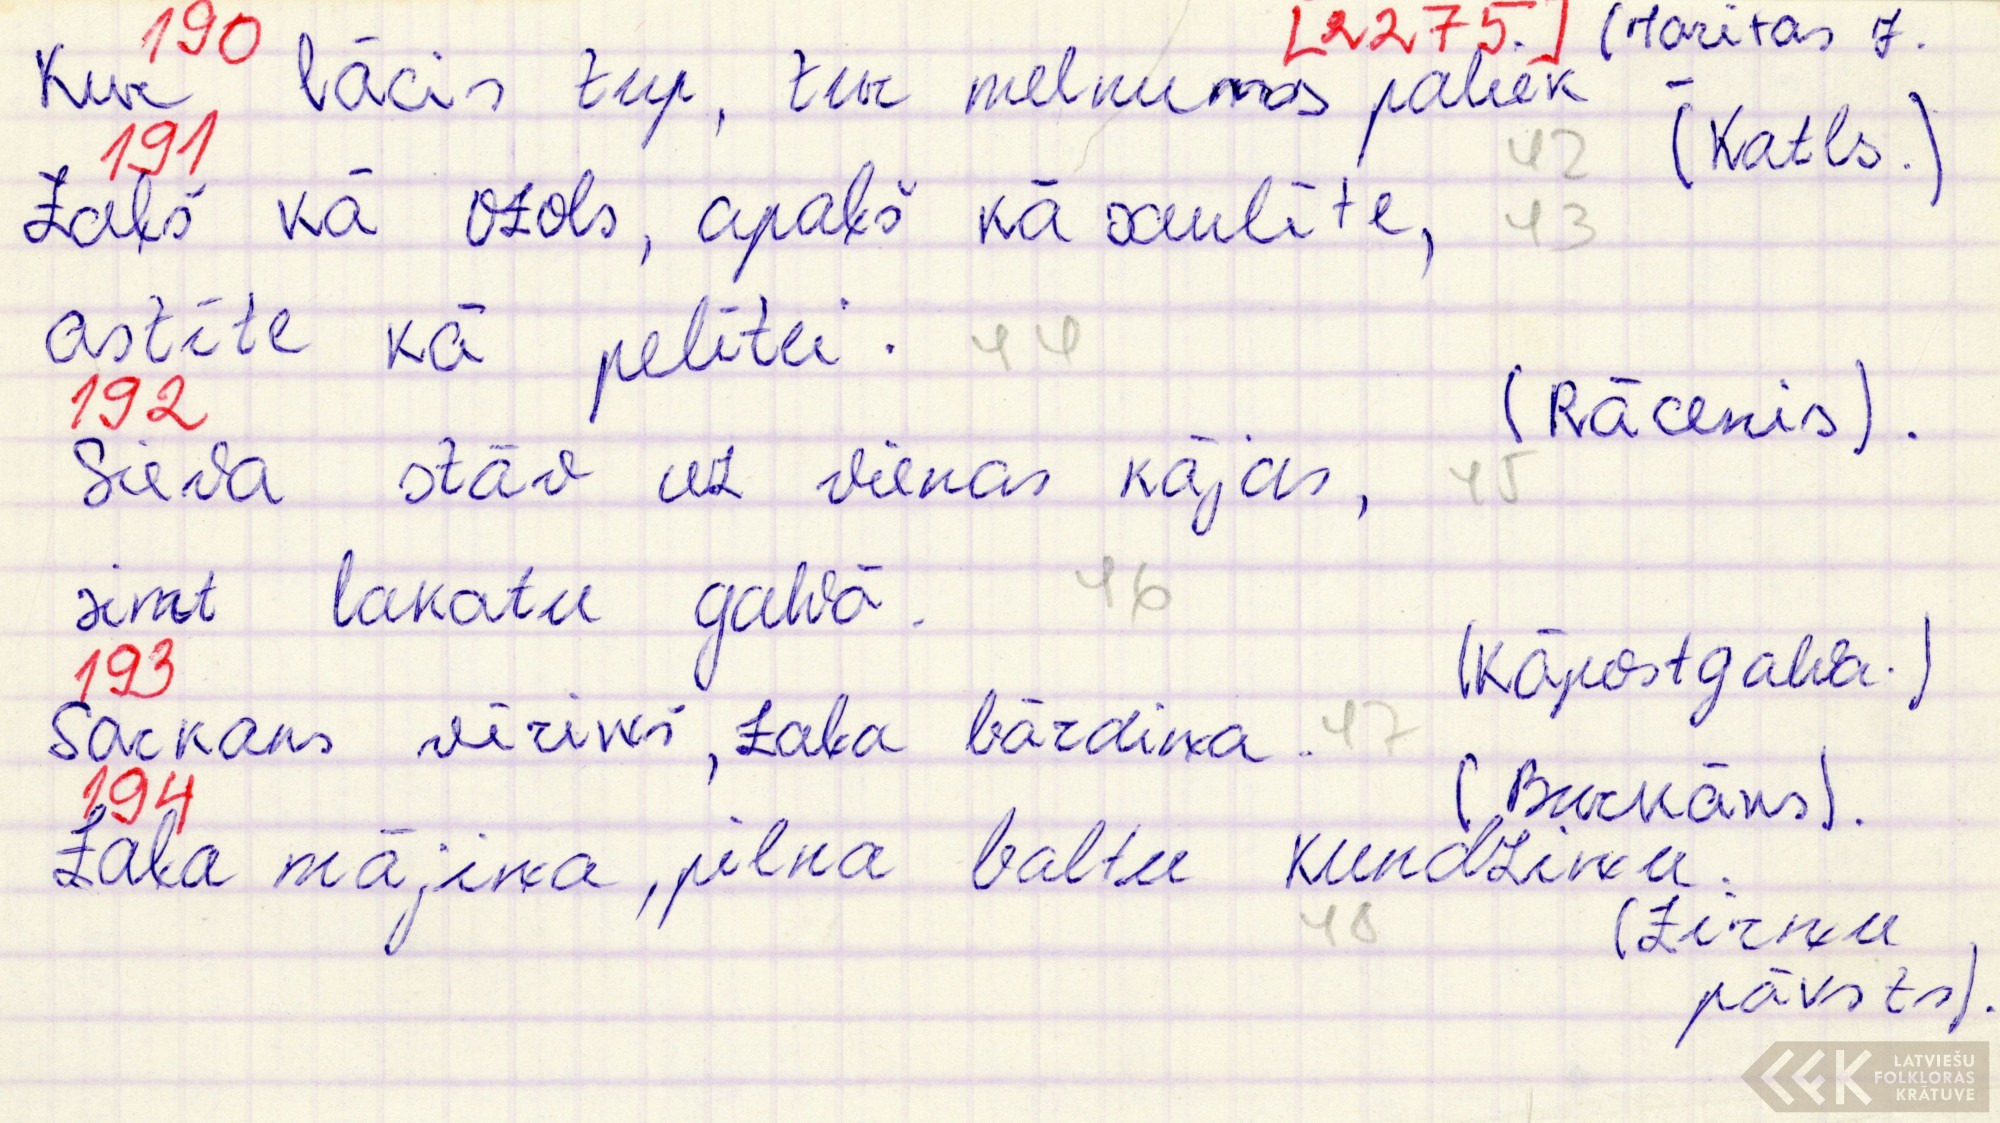 190 [2275.] (Maritas 7.
Kur lācis tup, tur melnumos paliek -
191 42 (Katls.)
Zaļš kā ozols, apaļš kā saulīte, 43
astīte kā pelītei. 44
192 (Rācenis).
Sieva stāv uz vienas kājas, 45
simt lakatu galvā. 46
193 (Kāpostgalva.)
Sarkans vīriņš, zaļa bārdiņa. 47
194 (Burkāns).
Zaļa mājiņa, pilna baltu kundziņu.
48 (Zirņu
pāksts).
LATVIEŠU
FOLKLORAS
KRĀTUVE